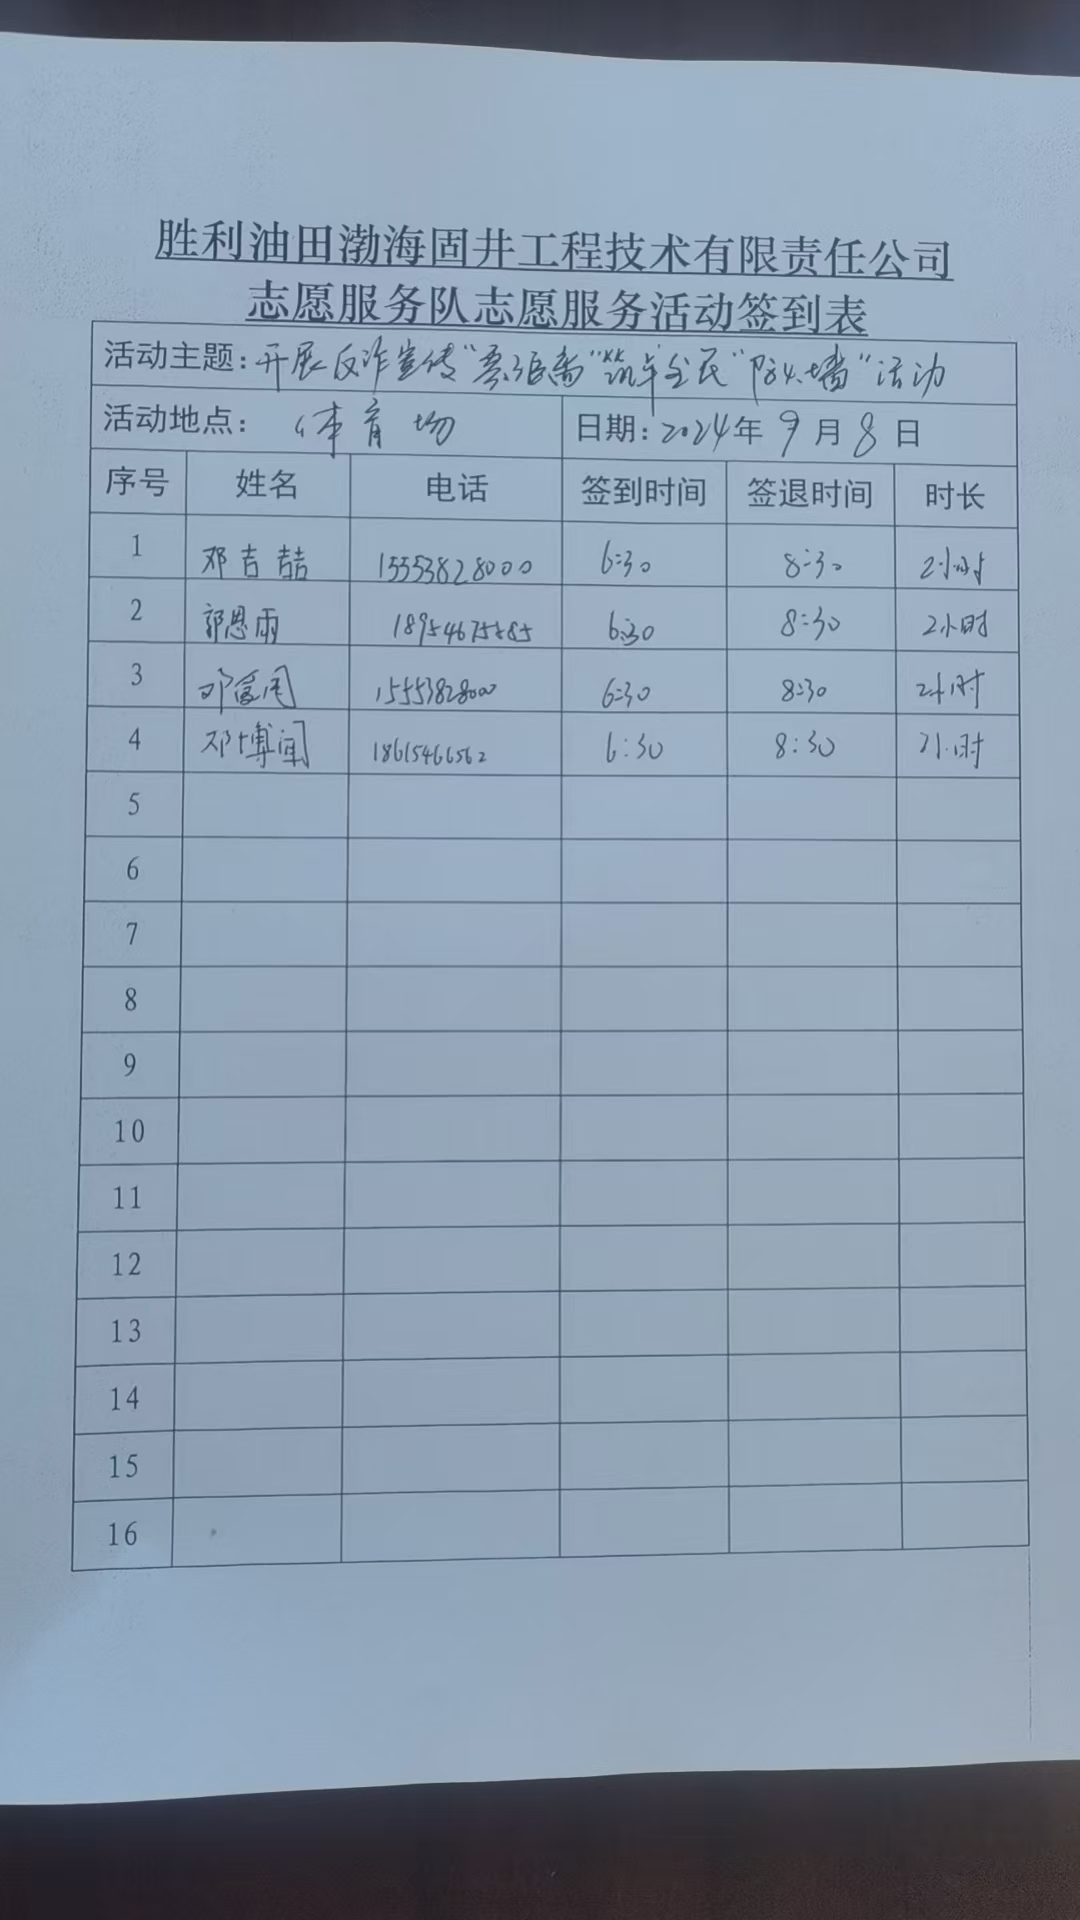 胜利油田渤海固井工程技术有限责任公司
志愿服务队志愿服务活动签到表
活动主题：开展反诈宣传"零距离"筑牢全民"防火墙"活动
活动地点： 体育场 日期：2024年 9月 8日
序号 姓名 电话 签到时间 签退时间 时长
1 邓吉喆 15553828000 6:30 8:30 2小时
2 郭恩雨 18954675585 6:30 8:30 2小时
3 邓 15553828000 6:30 8:30 2小时
4 邓博闻 18615466562 6:30 8:30 2小时
5
6
7
8
9
10
11
12
13
14
15
16